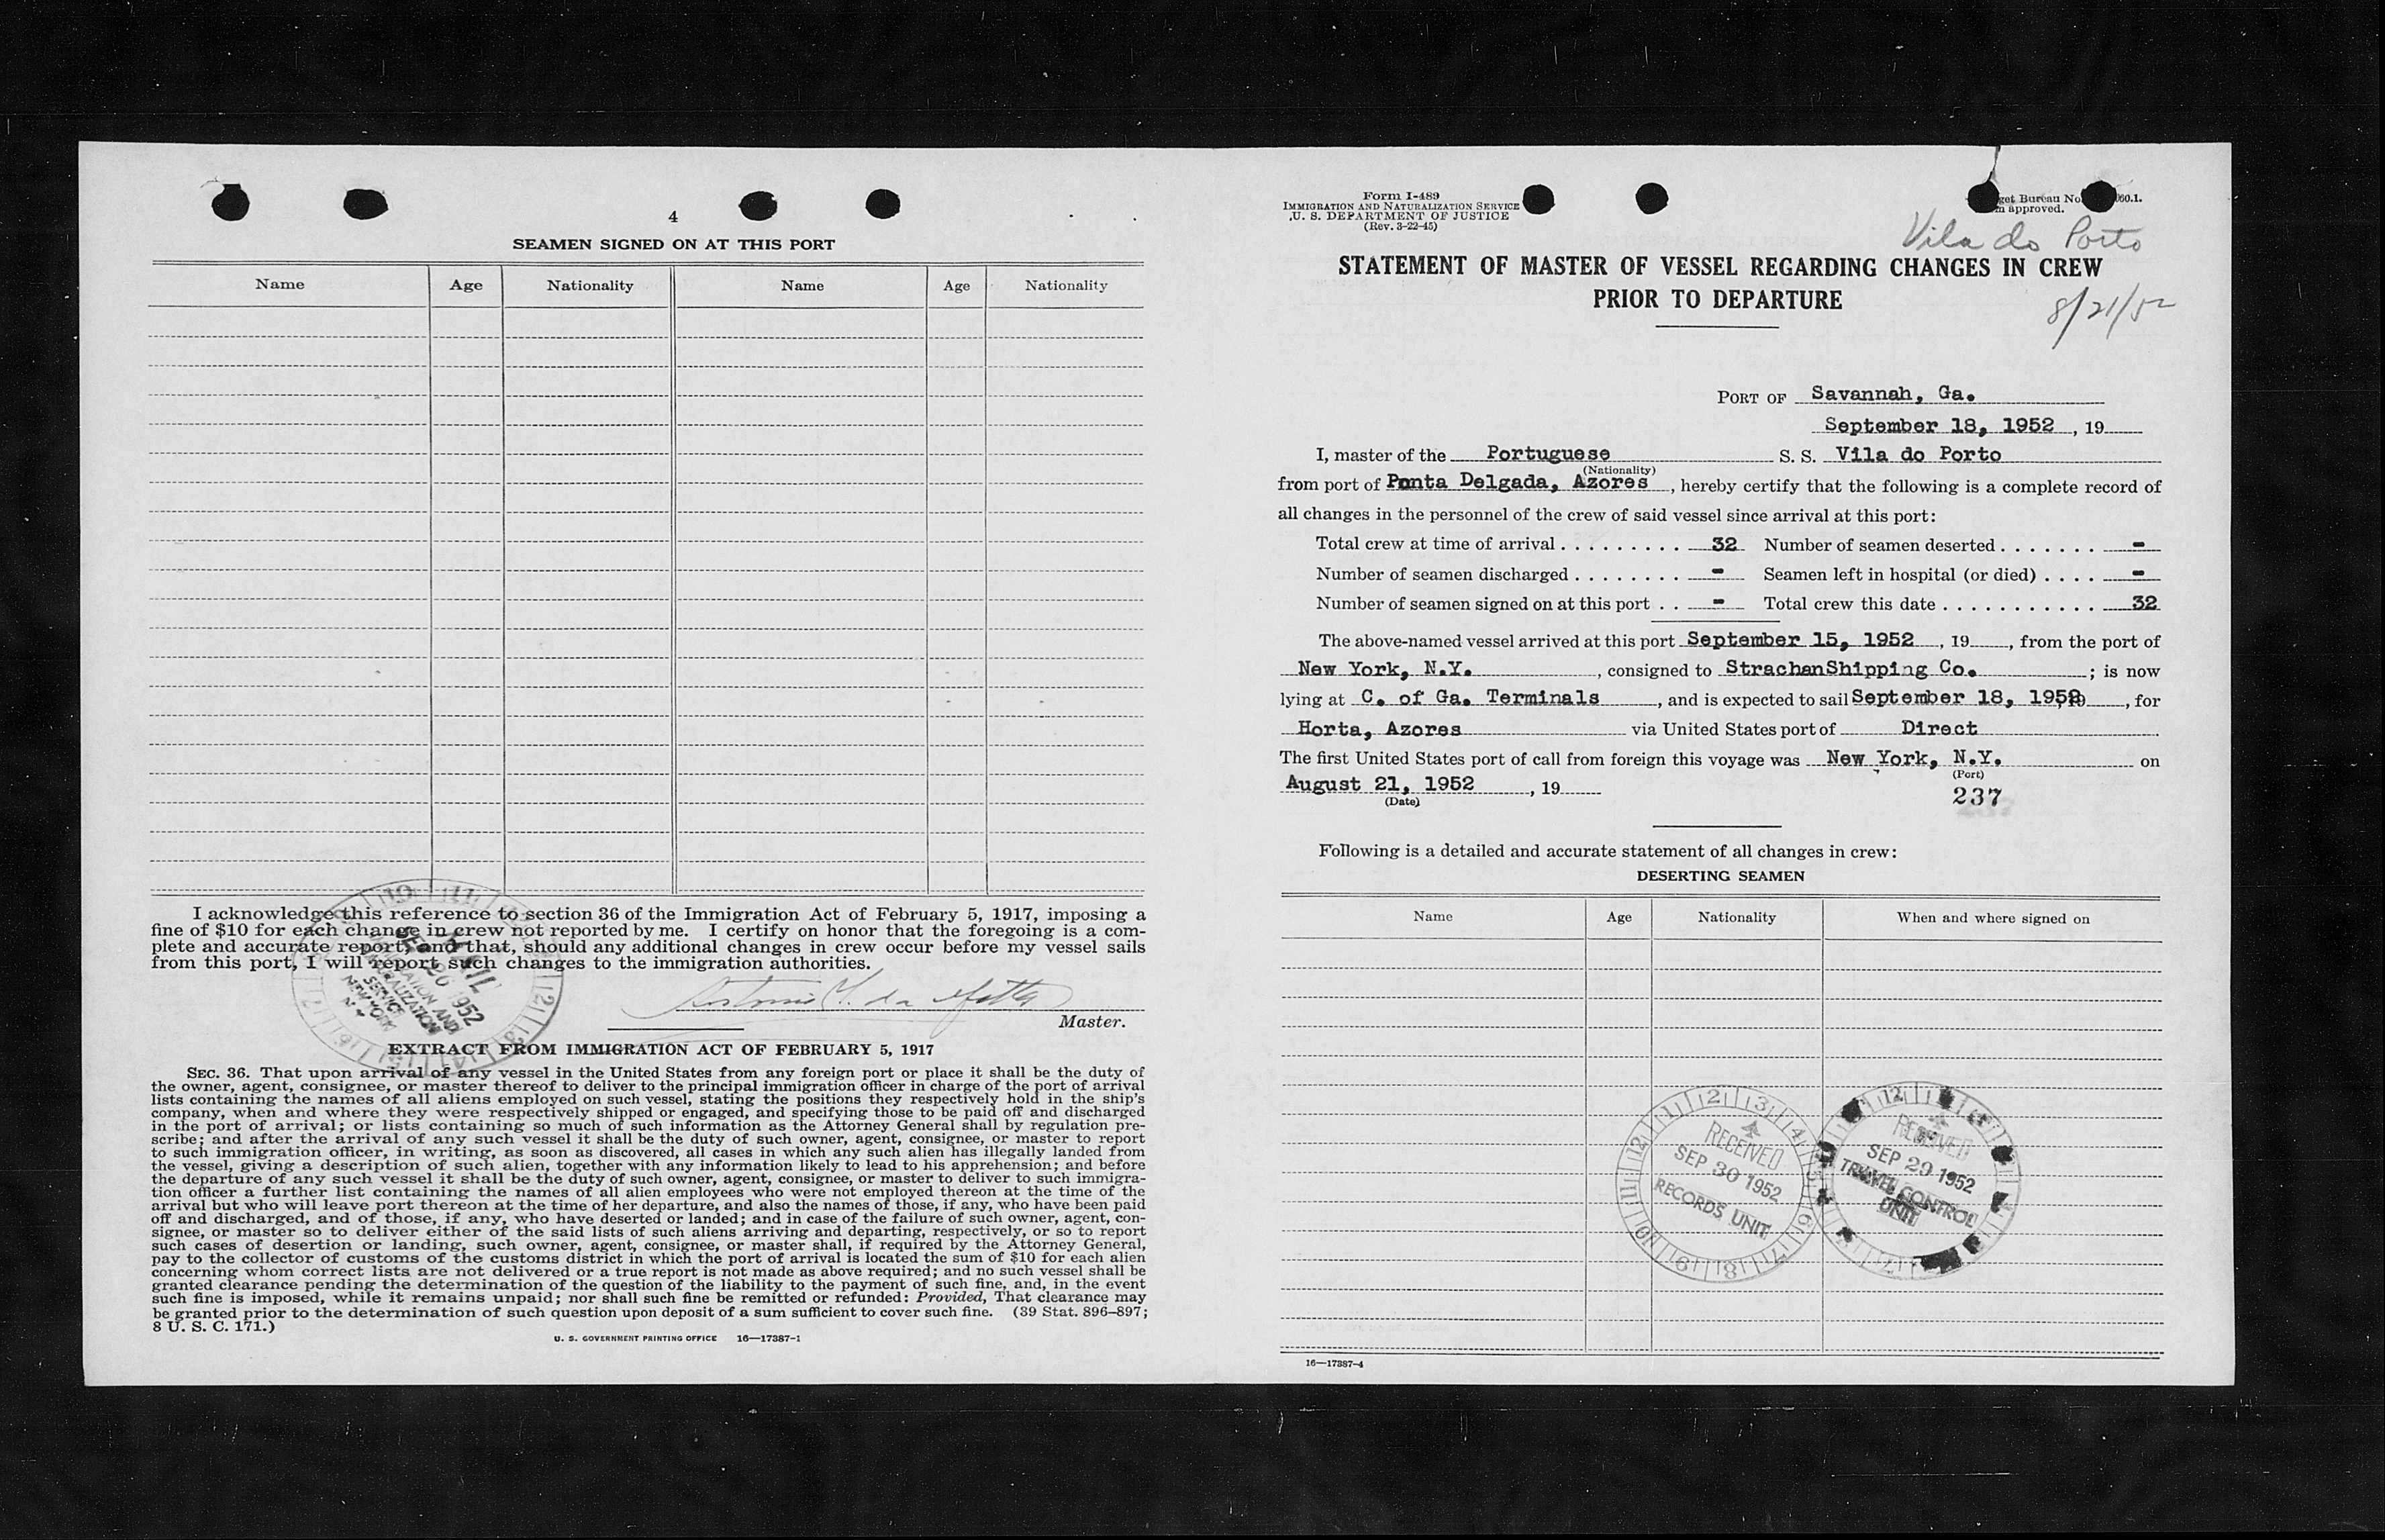 4
SEAMEN SIGNED ON AT THIS PORT
Name Age Nationality Name Age Nationality
I acknowledge this reference to section 36 of the Immigration Act of February 5, 1917, imposing a
fine of $10 for each change in crew not reported by me. I certify on honor that the foregoing is a com-
plete and accurate report, and that, should any additional changes in crew occur before my vessel sails
from this port, I will report such changes to the immigration authorities.
MAIL
SEP 20 1952
IMMIGRATION AND
NATURALIZATION
SERVICE
NEW YORK
N Y
Master.
EXTRACT FROM IMMIGRATION ACT OF FEBRUARY 5, 1917
SEC. 36. That upon arrival of any vessel in the United States from any foreign port or place it shall be the duty of
the owner, agent, consignee, or master thereof to deliver to the principal immigration officer in charge of the port of arrival
lists containing the names of all aliens employed on such vessel, stating the positions they respectively hold in the ship's
company, when and where they were respectively shipped or engaged, and specifying those to be paid off and discharged
in the port of arrival; or lists containing so much of such information as the Attorney General shall by regulation pre-
scribe; and after the arrival of any such vessel it shall be the duty of such owner, agent, consignee, or master to report
to such immigration officer, in writing, as soon as discovered, all cases in which any such alien has illegally landed from
the vessel, giving a description of such alien, together with any information likely to lead to his apprehension; and before
the departure of any such vessel it shall be the duty of such owner, agent, consignee, or master to deliver to such immigra-
tion officer a further list containing the names of all alien employees who were not employed thereon at the time of the
arrival but who will leave port thereon at the time of her departure, and also the names of those, if any, who have been paid
off and discharged, and of those, if any, who have deserted or landed; and in case of the failure of such owner, agent, con-
signee, or master so to deliver either of the said lists of such aliens arriving and departing, respectively, or so to report
such cases of desertion or landing, such owner, agent, consignee, or master shall, if required by the Attorney General,
pay to the collector of customs of the customs district in which the port of arrival is located the sum of $10 for each alien
concerning whom correct lists are not delivered or a true report is not made as above required; and no such vessel shall be
granted clearance pending the determination of the question of the liability to the payment of such fine, and, in the event
such fine is imposed, while it remains unpaid; nor shall such fine be remitted or refunded: Provided, That clearance may
be granted prior to the determination of such question upon deposit of a sum sufficient to cover such fine. (39 Stat. 896–897;
8 U. S. C. 171.)
U. S. GOVERNMENT PRINTING OFFICE 16—17387-1
Form I-489
IMMIGRATION AND NATURALIZATION SERVICE
U. S. DEPARTMENT OF JUSTICE
(Rev. 3-22-45)
Bureau No. 
approved.
Vila do Porto
STATEMENT OF MASTER OF VESSEL REGARDING CHANGES IN CREW
PRIOR TO DEPARTURE
8/21/52
PORT OF Savannah, Ga.
September 18, 1952, 19
I, master of the Portuguese S. S. Vila do Porto
(Nationality)
from port of Ponta Delgada, Azores, hereby certify that the following is a complete record of
all changes in the personnel of the crew of said vessel since arrival at this port:
Total crew at time of arrival . . . . . . . . . 32 Number of seamen deserted . . . . . . . -
Number of seamen discharged . . . . . . . . - Seamen left in hospital (or died) . . . . -
Number of seamen signed on at this port . . - Total crew this date . . . . . . . . . . . . 32
The above-named vessel arrived at this port September 15, 1952, 19, from the port of
New York, N.Y., consigned to StrachanShipping Co. ; is now
lying at C. of Ga. Terminals, and is expected to sail September 18, 1952, 19, for
Horta, Azores via United States port of Direct
The first United States port of call from foreign this voyage was New York, N.Y. on
(Port)
August 21, 1952, 19
(Date)
237
Following is a detailed and accurate statement of all changes in crew:
DESERTING SEAMEN
Name Age Nationality When and where signed on
RECEIVED
SEP 30 1952
RECORDS UNIT
RECEIVED
SEP 29 1952
TRAVEL CONTROL
UNIT
16—17387-4